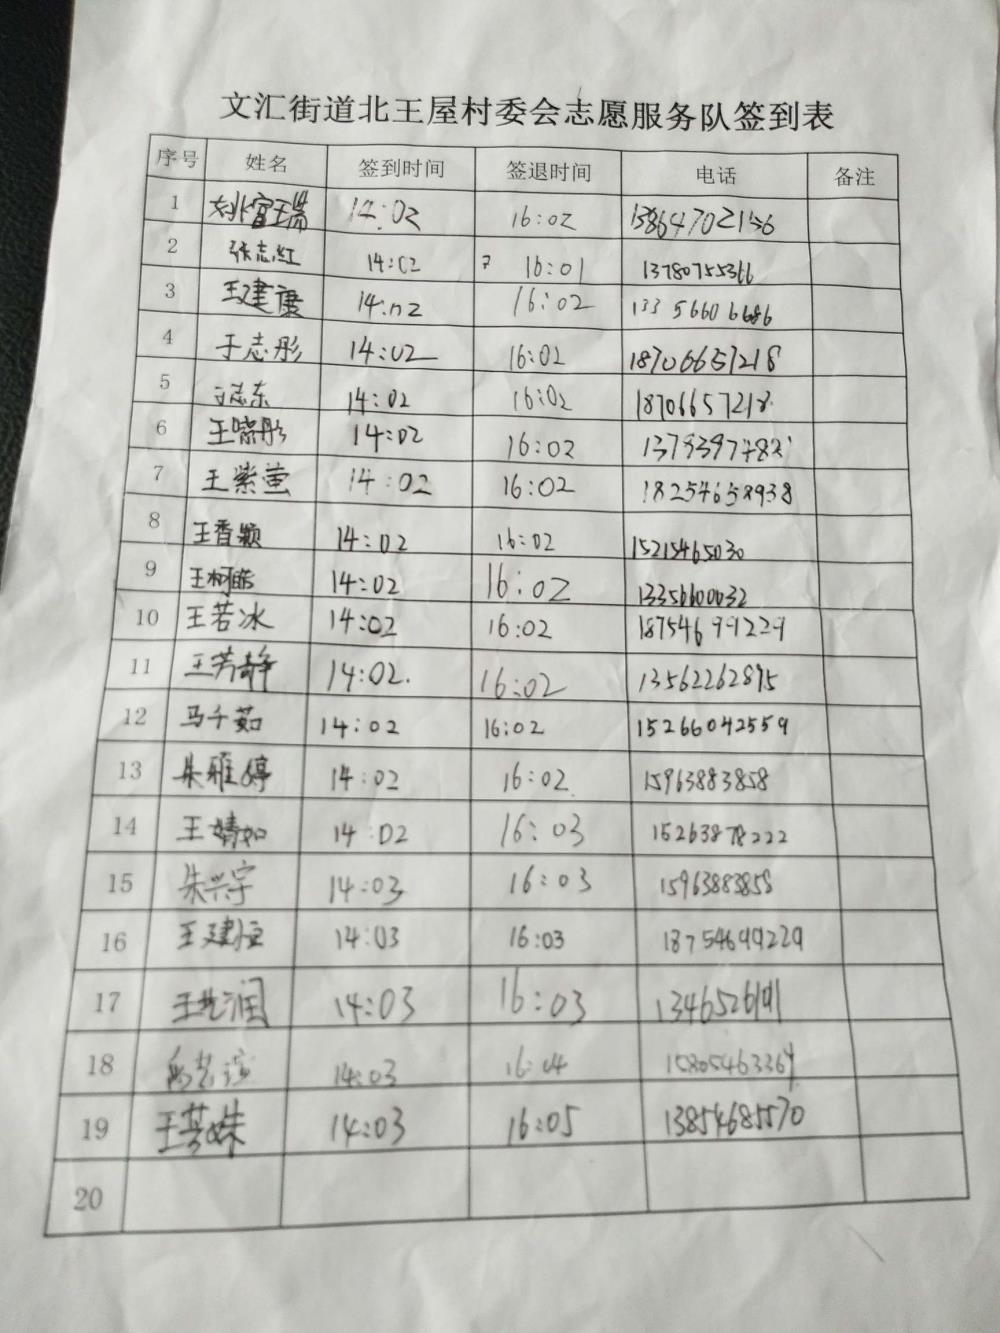 文汇街道北王屋村委会志愿服务队签到表
序号 姓名 签到时间 签退时间 电话 备注
1 14:02 16:02
2 张志红 14:02 16:01 13780755366
3 王建康 14:02 16:02 133 5660 6686
4 于志彤 14:02 16:02 18706657218
5 14:02 16:02 18706657218
6 王啸彤 14:02 16:02
7 王紫萱 14:02 16:02 18254658938
8 王香颖 14:02 16:02 15215465030
9 14:02 16:02 13356600032
10 王若冰 14:02 16:02 18754699229
11 王芳静 14:02. 16:02 13562262895
12 马千茹 14:02 16:02 15266042559
13 朱雅婷 14:02 16:02 15963883858
14 王婧如 14:02 16:03 15263878222
15 朱兴宇 14:03 16:03 15963883858
16 王建恒 14:03 16:03 18754699229
17 14:03 16:03
18 14:03 16:04 15805463364
19 14:03 16:05 13854685570
20